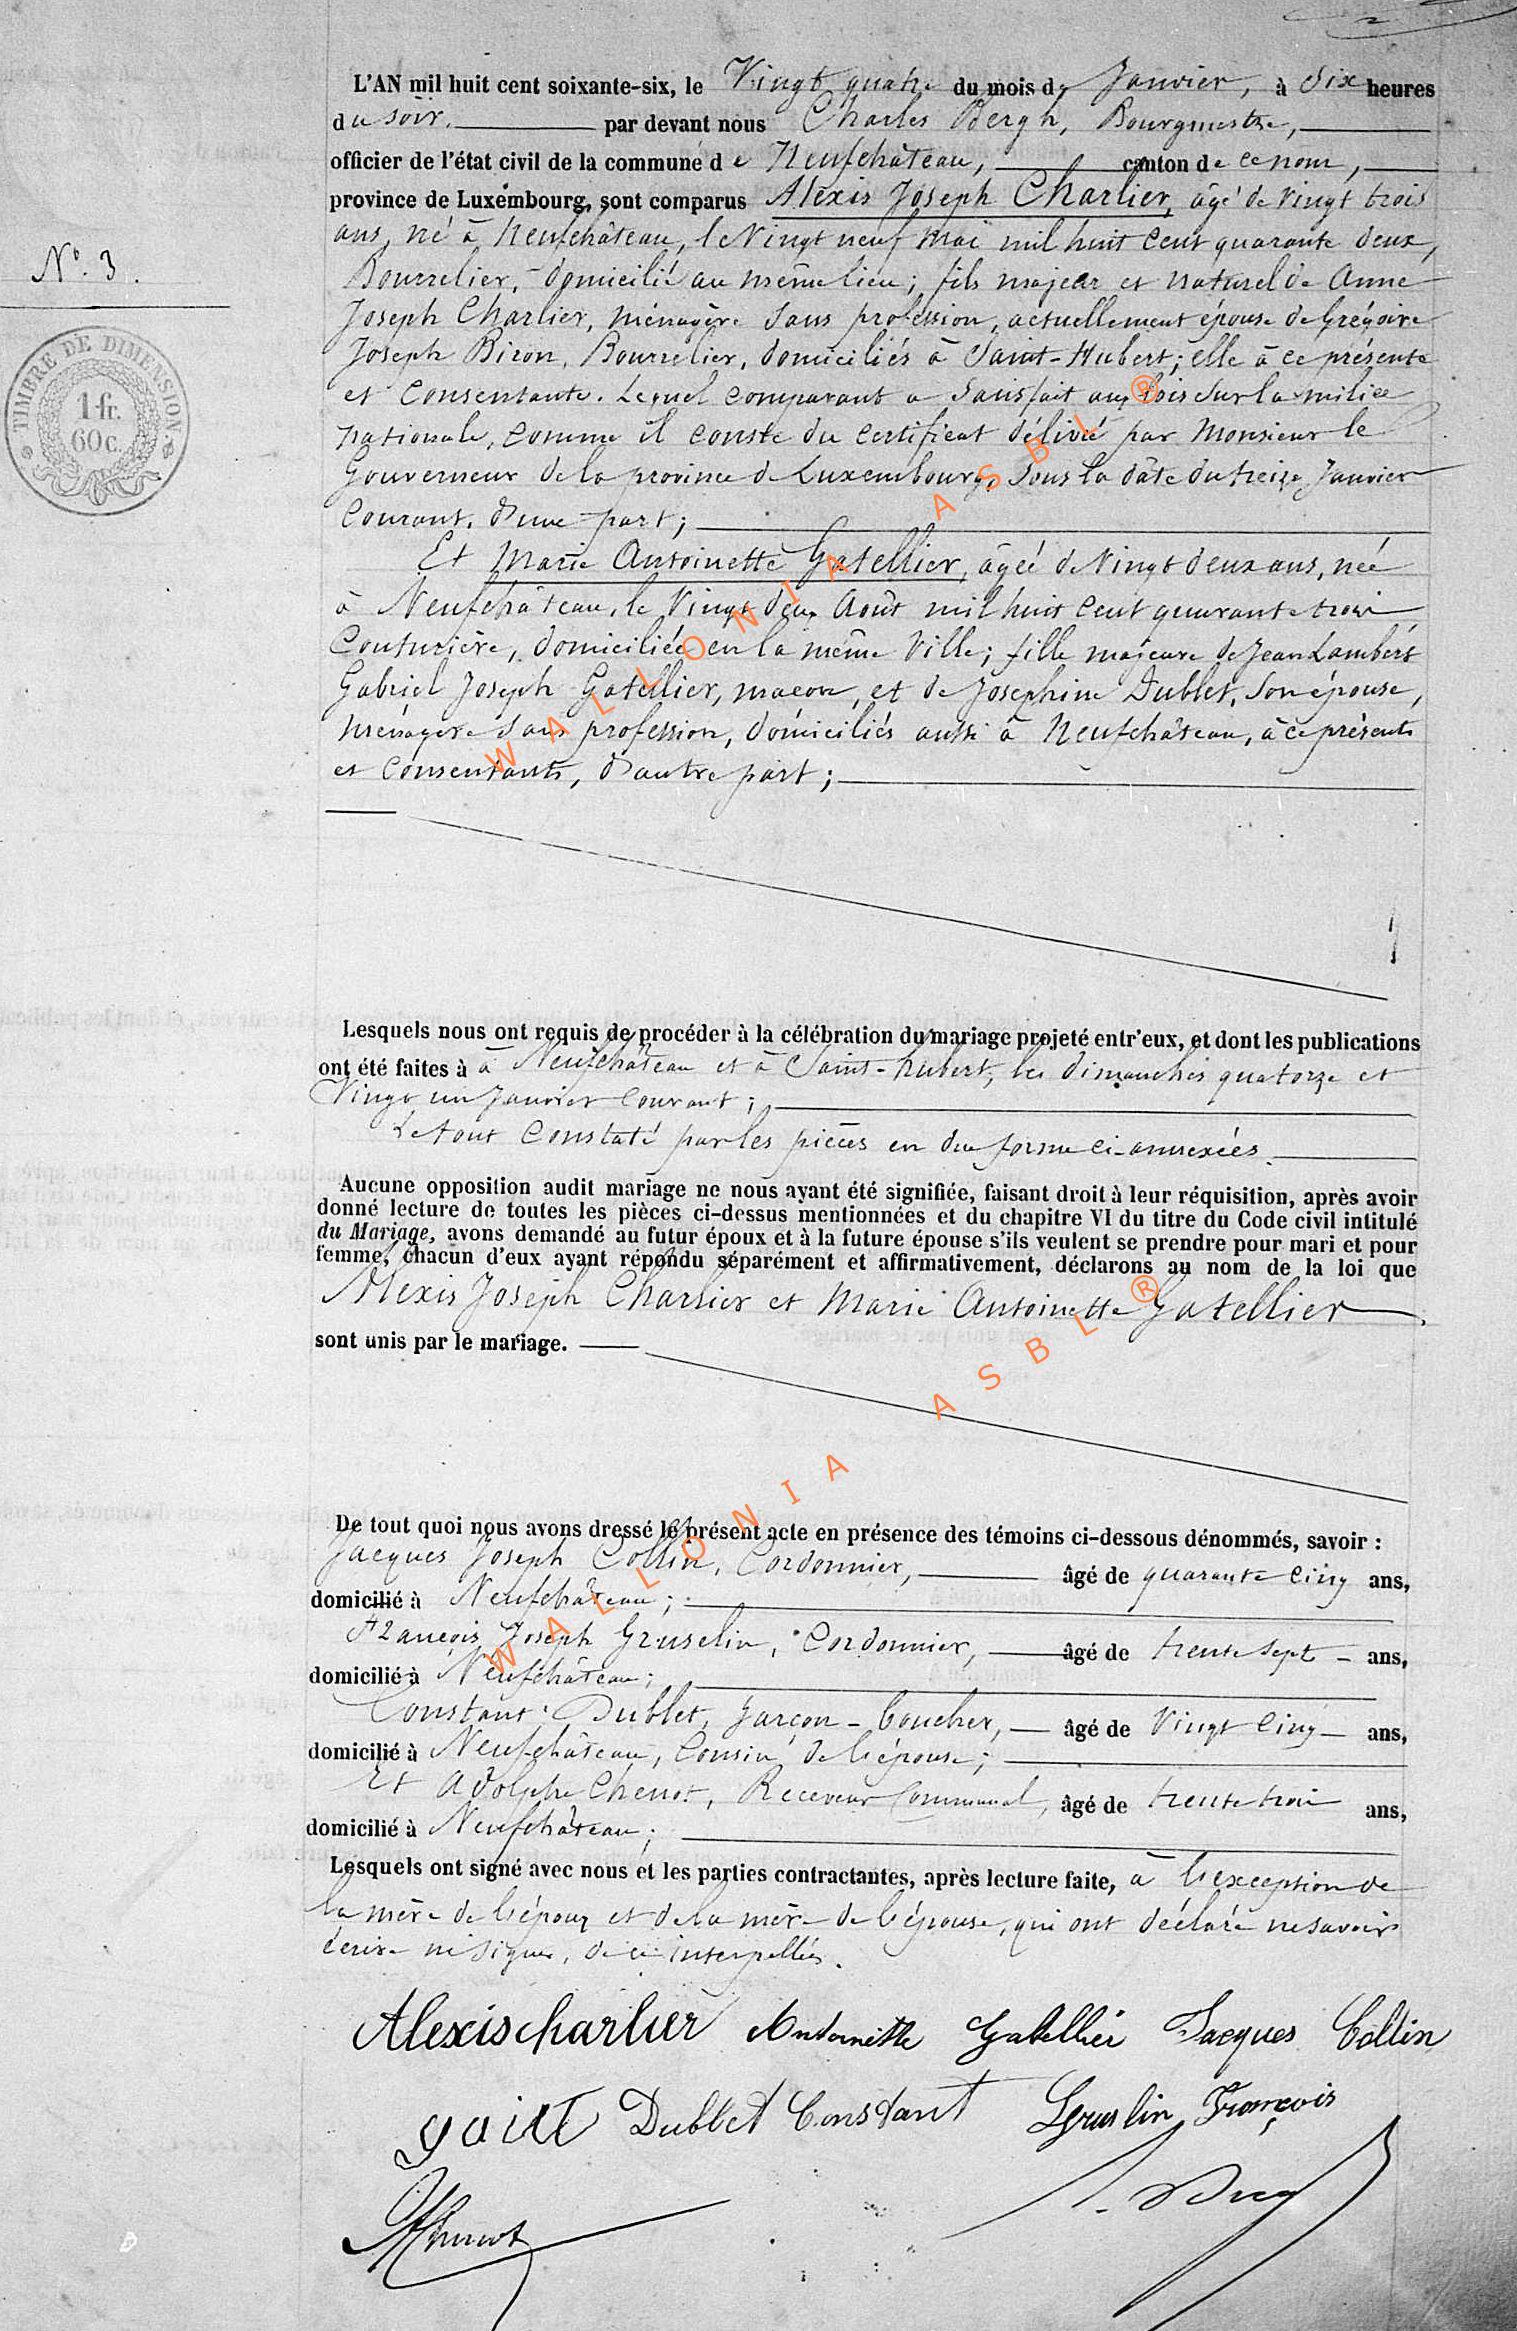 L'AN mil huit cent soixante-six, le Vingt quatre du mois de Janvier, à Six heures
du soir, par devant nous Charles Bergh, Bourgmestre,
officier de l'état civil de la commune de Neufchâteau, canton de ce nom,
province de Luxembourg, sont comparus Alexis Joseph Charlier, âgé de Vingt trois
ans, né à Neufchâteau, le Vingt neuf Mai mil huit Cent quarante deux,
N°. 3.
Bourrelier, domicilié au même lieu; fils majeur et naturel de Anne
Joseph Charlier, ménagère sans profession, actuellement épouse de Grégoire
Joseph Biron, Bourrelier, domiciliés à Saint-Hubert; elle à ce présente
TIMBRE DE DIMENSION.
1 fr.
60 c.
et Consentante. Lequel comparant a satisfait aux lois sur la milice
nationale, comme il conste du certificat délivré par Monsieur le
Gouverneur de la province de Luxembourg, sous la date du treize Janvier
Courant, d'une part;
Et Marie Antoinette Gatellier, âgée de Vingt deux ans, née
à Neufchâteau, le Vingt deux Août mil huit Cent quarante trois
Couturière, domiciliée en la même Ville; fille majeure de Jean Lambert
Gabriel Joseph Gatellier, maçon, et de Josephine Dublet, son épouse,
ménagère sans profession, domiciliés aussi à Neufchâteau, à ce présents
et Consentants, d'autre part;
WALLONIA ASBL ®
Lesquels nous ont requis de procéder à la célébration du mariage projeté entr'eux, et dont les publications
ont été faites à à Neufchâteau et à Saint-hubert, les dimanches quatorze et
Vingt un Janvier Courant;
Le tout Constaté par les pièces en due forme ci-annexées.
Aucune opposition audit mariage ne nous ayant été signifiée, faisant droit à leur réquisition, après avoir
donné lecture de toutes les pièces ci-dessus mentionnées et du chapitre VI du titre du Code civil intitulé
du Mariage, avons demandé au futur époux et à la future épouse s'ils veulent se prendre pour mari et pour
femme, chacun d'eux ayant répondu séparément et affirmativement, déclarons au nom de la loi que
Alexis Joseph Charlier et Marie Antoinette Gatellier.
sont unis par le mariage.
WALLONIA ASBL ®
De tout quoi nous avons dressé le présent acte en présence des témoins ci-dessous dénommés, savoir :
Jacques Joseph Collin, Cordonnier, âgé de quarante cinq ans,
domicilié à Neufchâteau;
François Joseph Gruselin, Cordonnier, âgé de trente sept ans,
domicilié à Neufchâteau;
Constant Dublet, garçon-boucher, âgé de Vingt Cinq ans,
domicilié à Neufchâteau, Cousin de l'épouse;
Et Adolphe Chenot, Receveur Communal, âgé de trente trois ans,
domicilié à Neufchâteau;
Lesquels ont signé avec nous et les parties contractantes, après lecture faite, à l'exception de
la mère de l'époux et de la mère de l'épouse, qui ont déclaré ne savoir
écrire ni signer, de ce interpellées.
Alexis charlier Antoinette Gatellier Jacques Collin
Dublet Constant Gruslin François
AChenot